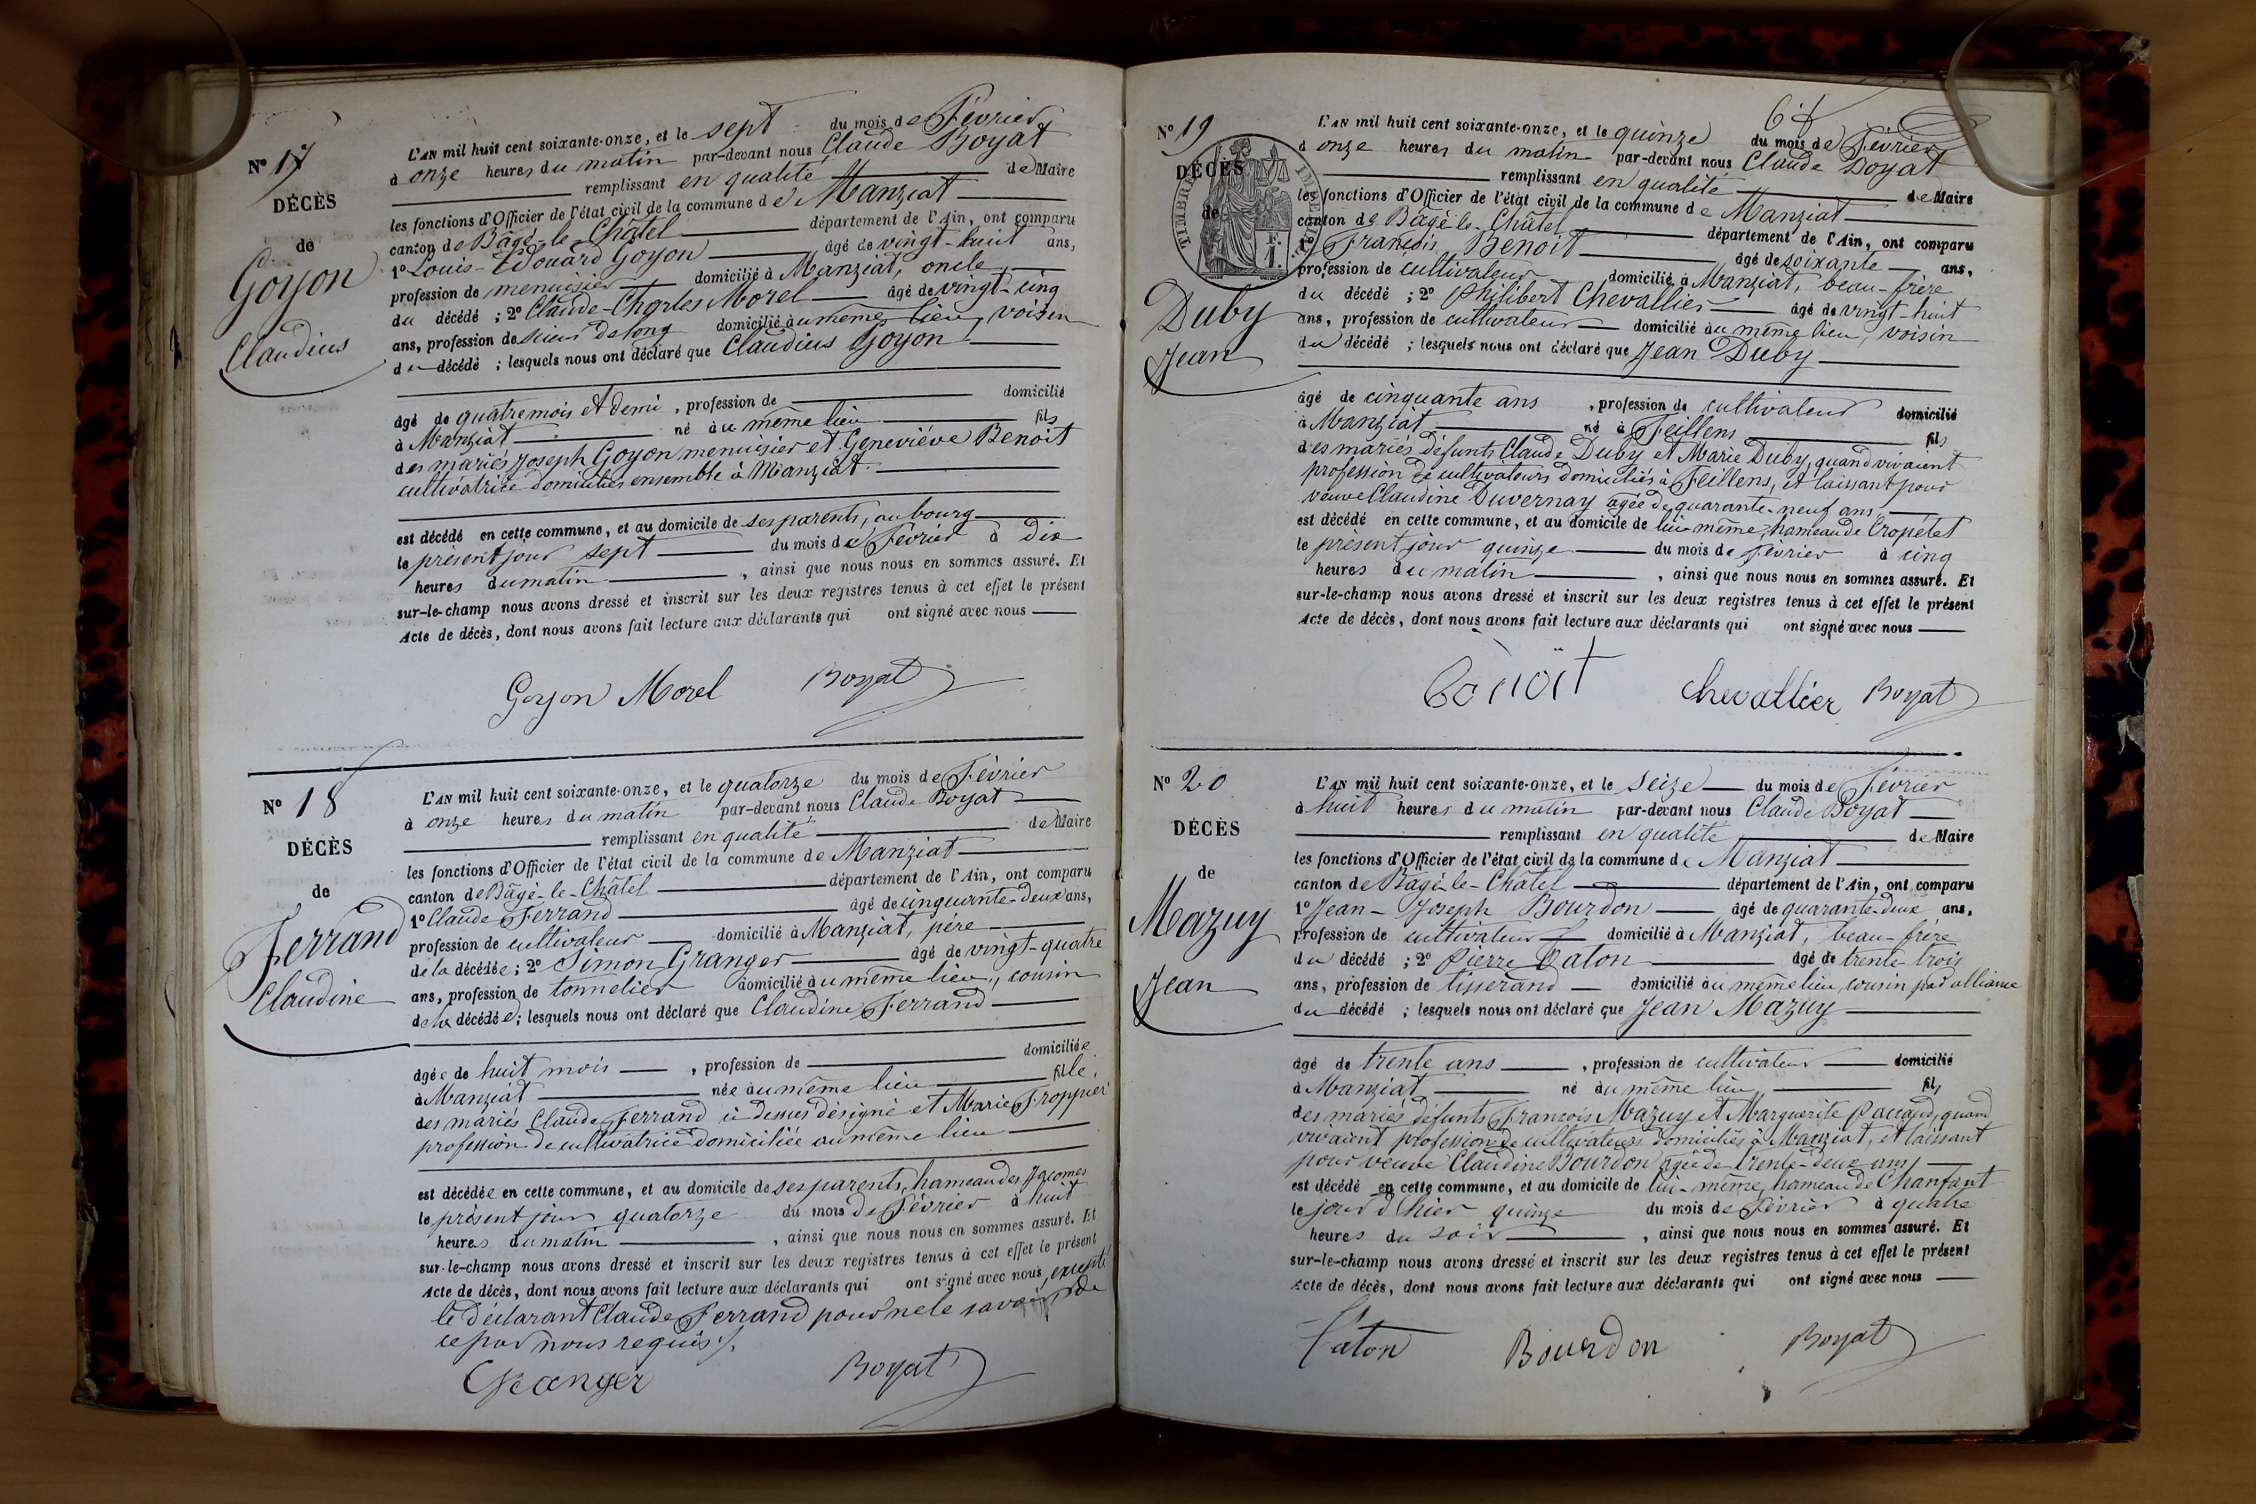 N° 17
DÉCÈS
de
Goyon
Claudius
L'AN mil huit cent soixante-onze, et le sept du mois de Février
à onze heures du matin par-devant nous Claude Boyat
remplissant en qualité de Maire
les fonctions d'Officier de l'état civil de la commune de Manziat
canton de Bâgé-le-Châtel département de l'Ain, ont comparu
1° Louis-Edouard Goyon âgé de vingt-huit ans,
profession de menuisier domicilié à Manziat, oncle
du décédé ; 2° Claude-Charles Morel âgé de vingt-cinq
ans, profession de scieur de long domicilié au même lieu, voisin
du décédé ; lesquels nous ont déclaré que Claudius Goyon
âgé de quatre mois et demi, profession de domicilié
à Manziat né au même lieu fils
des mariés Joseph Goyon menuisier et Geneviève Benoit
cultivatrice domiciliés ensemble à Manziat.
est décédé en cette commune, et au domicile de ses parents, au bourg
le présent jour sept du mois de Février à dix
heures du matin, ainsi que nous nous en sommes assuré. Et
sur-le-champ nous avons dressé et inscrit sur les deux registres tenus à cet effet le présent
Acte de décès, dont nous avons fait lecture aux déclarants qui ont signé avec nous
Goyon Morel Boyat
N° 18
DÉCÈS
de
Ferrand
Claudine
L'AN mil huit cent soixante-onze, et le quatorze du mois de Février
à onze heures du matin par-devant nous Claude Boyat
remplissant en qualité de Maire
les fonctions d'Officier de l'état civil de la commune de Manziat
canton de Bâgé-le-Châtel département de l'Ain, ont comparu
1° Claude Ferrand âgé de cinquante-deux ans,
profession de cultivateur domicilié à Manziat, père
de la décédée ; 2° Simon Granger âgé de vingt-quatre
ans, profession de tonnelier domicilié au même lieu, cousin
de la décédée ; lesquels nous ont déclaré que Claudine Ferrand
âgée de huit mois, profession de domiciliée
à Manziat née au même lieu fille
des mariés Claude Ferrand ci dessus désigné et Marie Froppier
profession de cultivatrice domiciliée au même lieu
est décédée en cette commune, et au domicile de ses parents, hameau des Jacomes
le présent jour quatorze du mois de Février à huit
heures du matin, ainsi que nous nous en sommes assuré. Et
sur-le-champ nous avons dressé et inscrit sur les deux registres tenus à cet effet le présent
Acte de décès, dont nous avons fait lecture aux déclarants qui ont signé avec nous, excepté
le déclarant Claude Ferrand pour ne le savoir de
ce par nous requis /.
Granger Boyat
64
N° 19
DÉCÈS
de
Duby
Jean
TIMBRE IMPÉRIAL
L'AN mil huit cent soixante-onze, et le quinze du mois de Février
à onze heures du matin par-devant nous Claude Boyat
remplissant en qualité de Maire
les fonctions d'Officier de l'état civil de la commune de Manziat
canton de Bâgé-le-Châtel département de l'Ain, ont comparu
1° François Benoit âgé de soixante ans,
profession de cultivateur domicilié à Manziat, beau-frère
du décédé ; 2° Philibert Chevallier âgé de vingt-huit
ans, profession de cultivateur domicilié au même lieu, voisin
du décédé ; lesquels nous ont déclaré que Jean Duby
âgé de cinquante ans, profession de cultivateur domicilié
à Manziat né à Feillens fils
des mariés défunts Claude Duby et Marie Duby, quand vivaient
profession de cultivateurs domiciliés à Feillens, et laissant pour
veuve Claudine Duvernay âgée de quarante-neuf ans,
est décédé en cette commune, et au domicile de lui-même, hameau de Cropétet
le présent jour quinze du mois de Février à cinq
heures du matin, ainsi que nous nous en sommes assuré. Et
sur-le-champ nous avons dressé et inscrit sur les deux registres tenus à cet effet le présent
Acte de décès, dont nous avons fait lecture aux déclarants qui ont signé avec nous
Benoit Chevallier Boyat
N° 20
DÉCÈS
de
Mazuy
Jean
L'AN mil huit cent soixante-onze, et le seize du mois de Février
à huit heures du matin par-devant nous Claude Boyat
remplissant en qualité de Maire
les fonctions d'Officier de l'état civil de la commune de Manziat
canton de Bâgé-le-Châtel département de l'Ain, ont comparu
1° Jean-Joseph Bourdon âgé de quarante-deux ans,
profession de cultivateur domicilié à Manziat, beau-frère
du décédé ; 2° Pierre Caton âgé de trente-trois
ans, profession de tisserand domicilié au même lieu, cousin par alliance
du décédé ; lesquels nous ont déclaré que Jean Mazuy
âgé de trente ans, profession de cultivateur domicilié
à Manziat né au même lieu fils
des mariés défunts François Mazuy et Marguerite Pacaud, quand
vivaient profession de cultivateurs domiciliés à Manziat, et laissant
pour veuve Claudine Bourdon âgée de trente-deux ans,
est décédé en cette commune, et au domicile de lui-même, hameau de Chanfant
le jour d'hier quinze du mois de Février à quatre
heures du soir, ainsi que nous nous en sommes assuré. Et
sur-le-champ nous avons dressé et inscrit sur les deux registres tenus à cet effet le présent
Acte de décès, dont nous avons fait lecture aux déclarants qui ont signé avec nous
Caton Bourdon Boyat